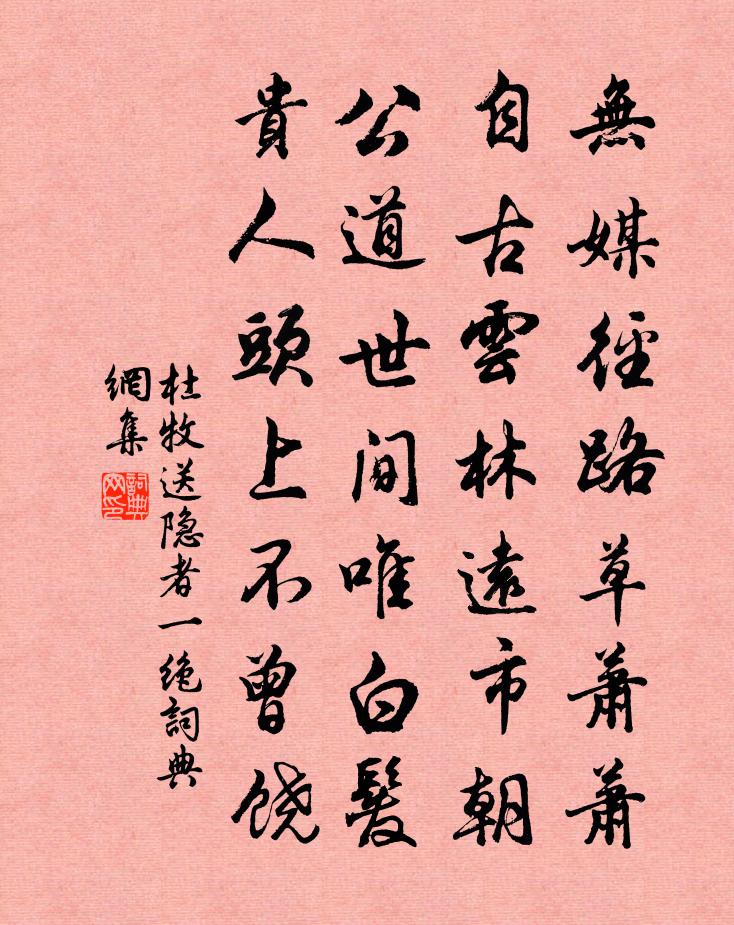 無媒徑路草蕭蕭
自古雲林遠市朝
公道世间唯白髮
貴人頭上不曾饶
杜牧送隐者一绝詞典
網集
詞典网印